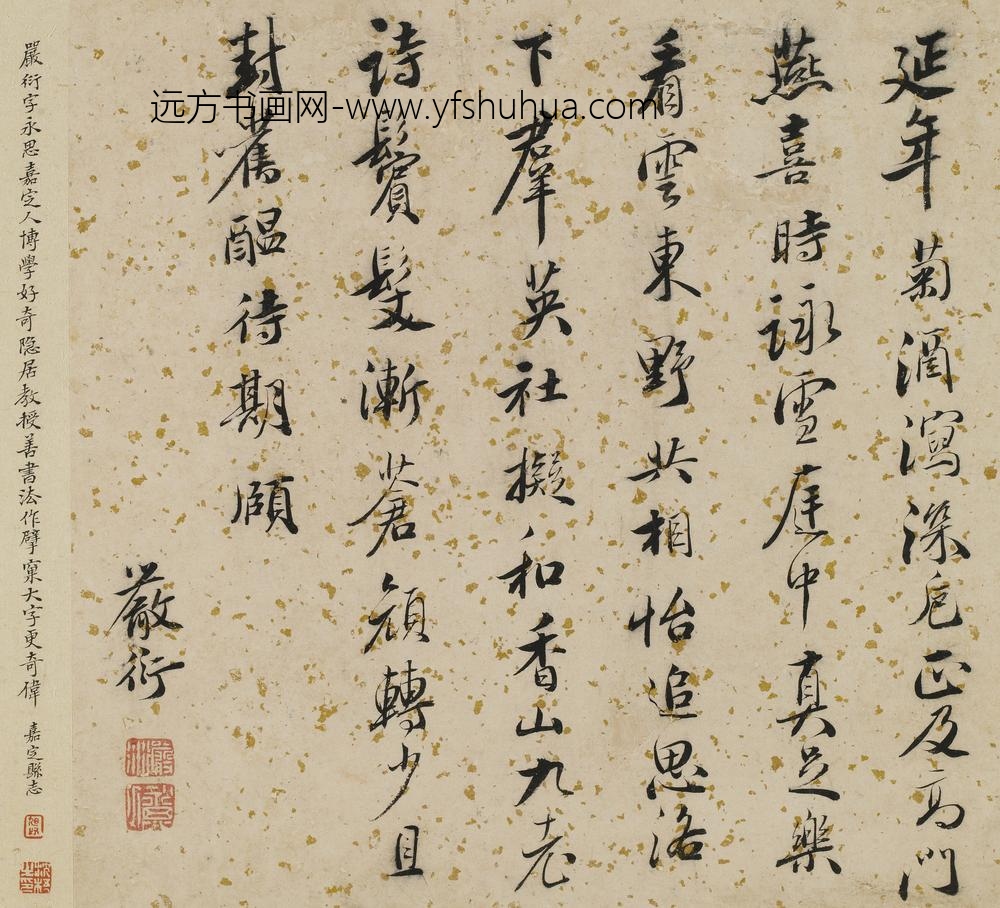 延年菊酒瀉深卮正及高門
燕喜時詠雪庭中真足樂
看雲東野共相怡追思洛
下羣英社擬和香山九老
詩鬢髮漸蒼顏轉少且
封舊醞待期頤
嚴衍
嚴衍字永思嘉定人博學好奇隐居教授善書法作擘窠大字更奇偉 嘉定縣志
远方书画网-www.yfshuhua.com